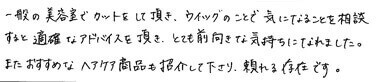 一般の美容室でカットをして頂き、ウイッグのことで気になることを相談
すると適確なアドバイスを頂き、とても前向きな気持ちになれました。
またおすすめなヘアケア商品も紹介して下さり、頼れる存在です。